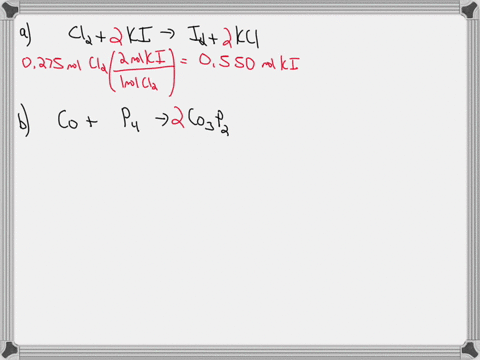 a) Cl₂ + 2KI → I₂ + 2KCl
0.275 mol Cl₂ (2 mol KI / 1 mol Cl₂) = 0.550 mol KI
b) Co + P₄ → 2Co₃P₂